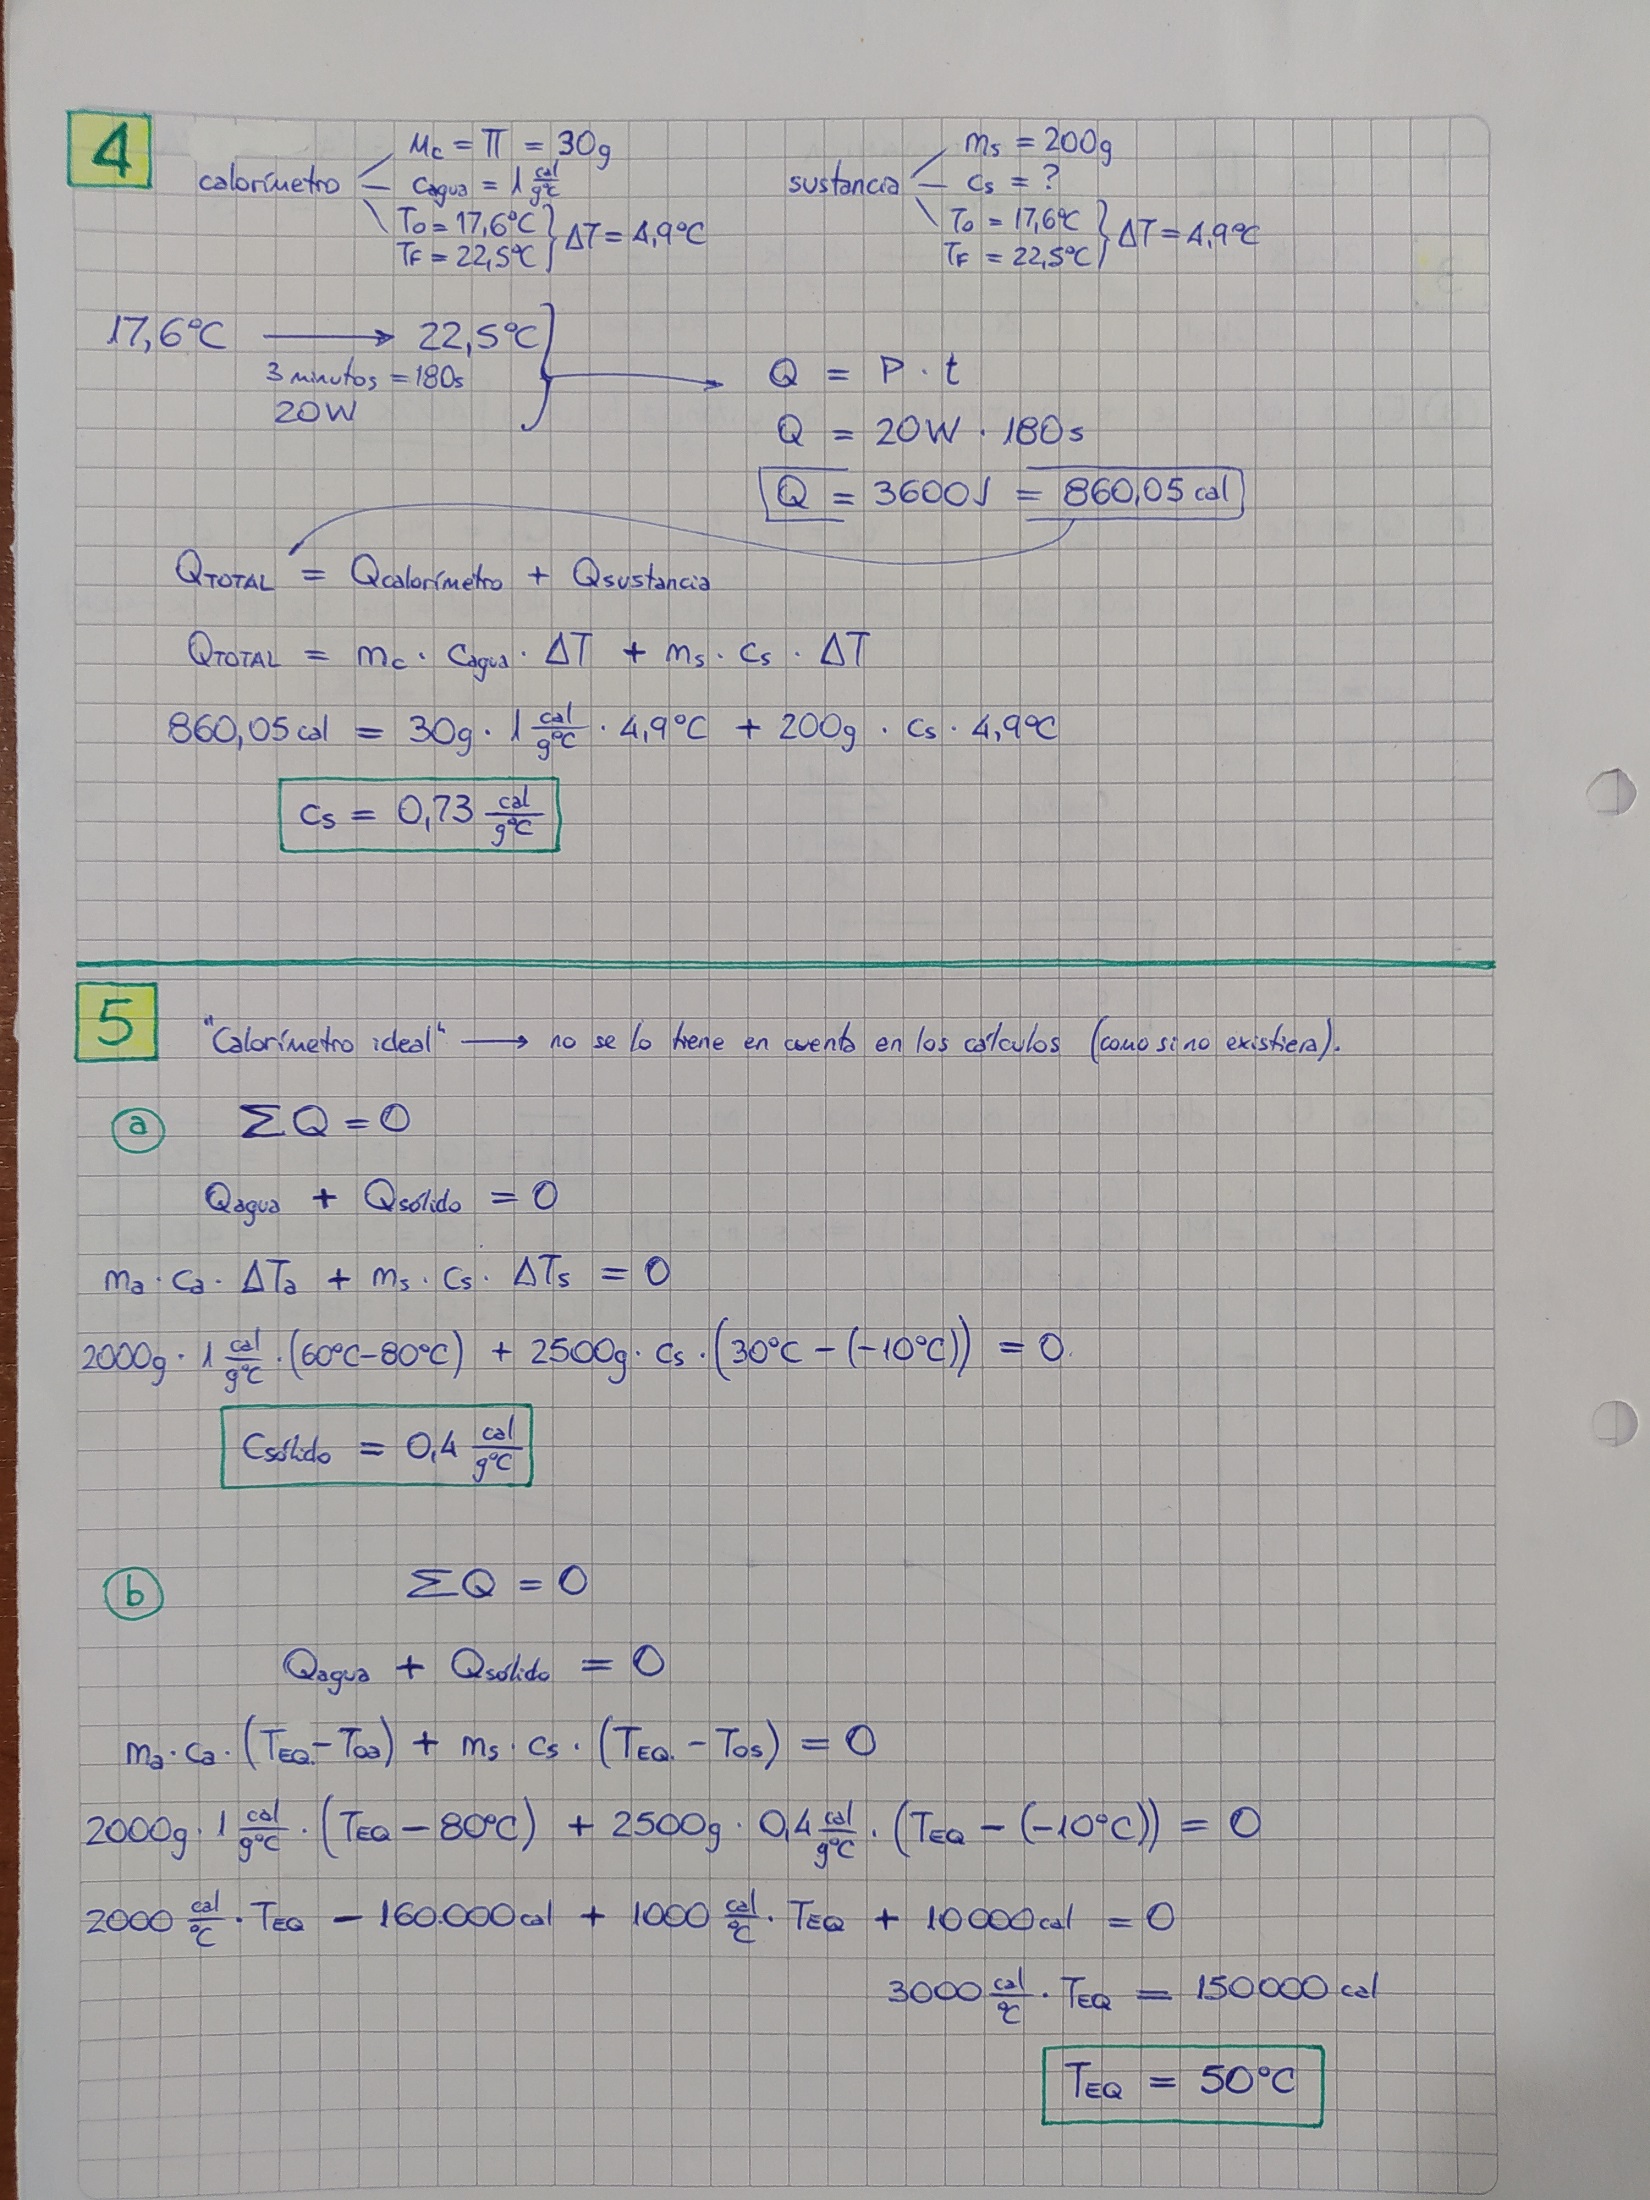 4
calorímetro
Mc = π = 30g
Cagua = 1 cal/g°C
To = 17,6°C
TF = 22,5°C
ΔT = 4,9°C
sustancia
ms = 200g
cs = ?
To = 17,6°C
TF = 22,5°C
ΔT = 4,9°C
17,6°C → 22,5°C
3 minutos = 180s
20W
Q = P · t
Q = 20W · 180s
Q = 3600J = 860,05 cal
QTOTAL = Qcalorímetro + Qsustancia
QTOTAL = mc · Cagua · ΔT + ms · cs · ΔT
860,05 cal = 30g · 1 cal/g°C · 4,9°C + 200g · cs · 4,9°C
cs = 0,73 cal/g°C
5
"Calorímetro ideal" → no se lo tiene en cuenta en los cálculos (como si no existiera).
a
ΣQ = 0
Qagua + Qsólido = 0
ma · ca · ΔTa + ms · cs · ΔTs = 0
2000g · 1 cal/g°C · (60°C-80°C) + 2500g · cs · (30°C - (-10°C)) = 0
Csólido = 0,4 cal/g°C
b
ΣQ = 0
Qagua + Qsólido = 0
ma · ca · (TEQ. - Toa) + ms · cs · (TEQ. - Tos) = 0
2000g · 1 cal/g°C · (TEQ - 80°C) + 2500g · 0,4 cal/g°C · (TEQ - (-10°C)) = 0
2000 cal/°C · TEQ - 160.000 cal + 1000 cal/°C · TEQ + 10000 cal = 0
3000 cal/°C · TEQ = 150000 cal
TEQ = 50°C